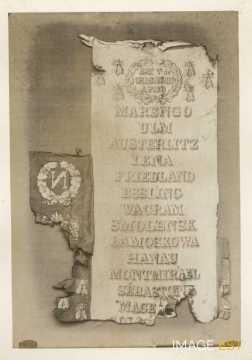 MARENGO
ULM
AUSTERLITZ
IENA
FRIEDLAND
ESSLING
WAGRAM
SMOLENSK
LAMOSKOWA
HANAU
MONTMIRAEL
SÉBASTIE
MAGE
N
IMAGE